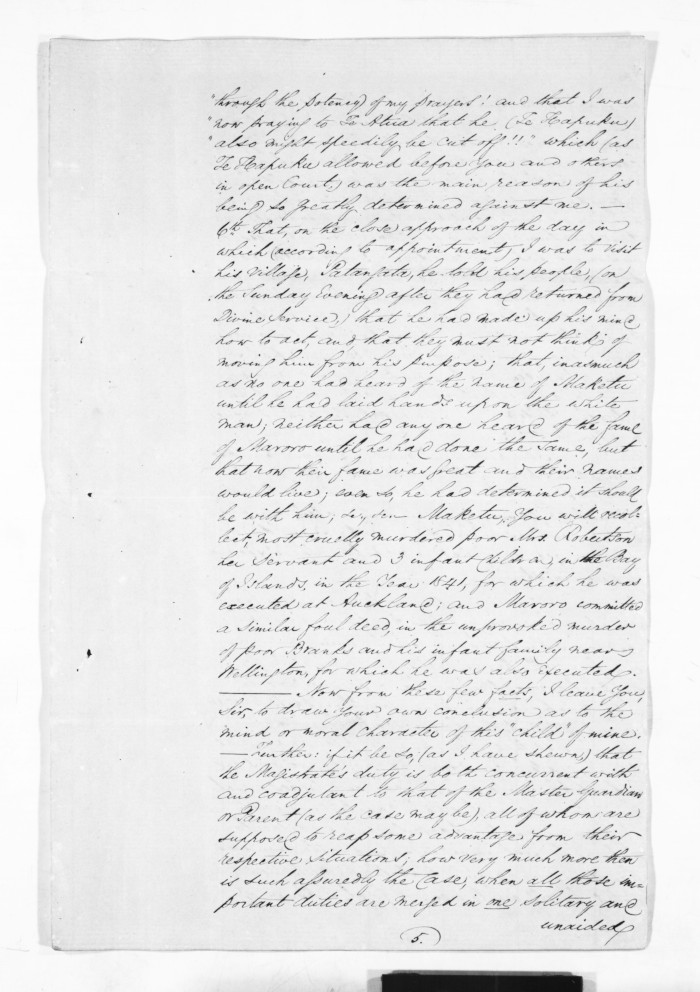 "through the potency of my prayers! and that I was
"now praying to Te Atua that he (Te Hapuku)
"also might speedily be cut off!!" which (as
Te Hapuku allowed before You and others
in open Court,) was the main reason of his
being so greatly determined against me. —
6th. That, on the close approach of the day in
which (according to appointment) I was to visit
his village, Patangata, he told his people, (on
the Sunday Evening after they had returned from
Divine Service,) that he had made up his mind
how to act, and, that they must not think of
moving him from his purpose; that, inasmuch
as no one had heard of the name of Maketu
until he had laid hands upon the white
man; neither had any one heard of the fame
of Maroro until he had done the same, but
that now their fame was great and their names
would live; even so, he had determined it should
be with him; Maketu, You will recol=
lect, most cruelly murdered poor Mrs. Robertson
her Servant and 3 infant Children, in the Bay
of Islands, in the Year 1841, for which he was
executed at Auckland; and Maroro committed
a similar foul deed, in the unprovoked murder
of poor Branks and his infant family near
Wellington, for which he was also executed.
——— Now from these few facts, I leave You,
Sir, to draw Your own conclusion as to the
mind or moral character of this "child" of mine.
— Further: if it be so, (as I have shewn,) that
the Magistrate's duty is both concurrent with
and coadjutant to that of the Master Guardian
or Parent (as the case may be), all of whom are
supposed to reap some advantage from their
respective situations; how very much more then
is such assuredly the Case, when all those im=
portant duties are merged in one solitary and
unaided
5.